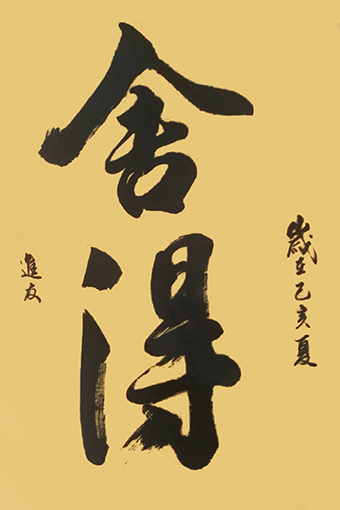 歲在己亥夏
舍得
進友